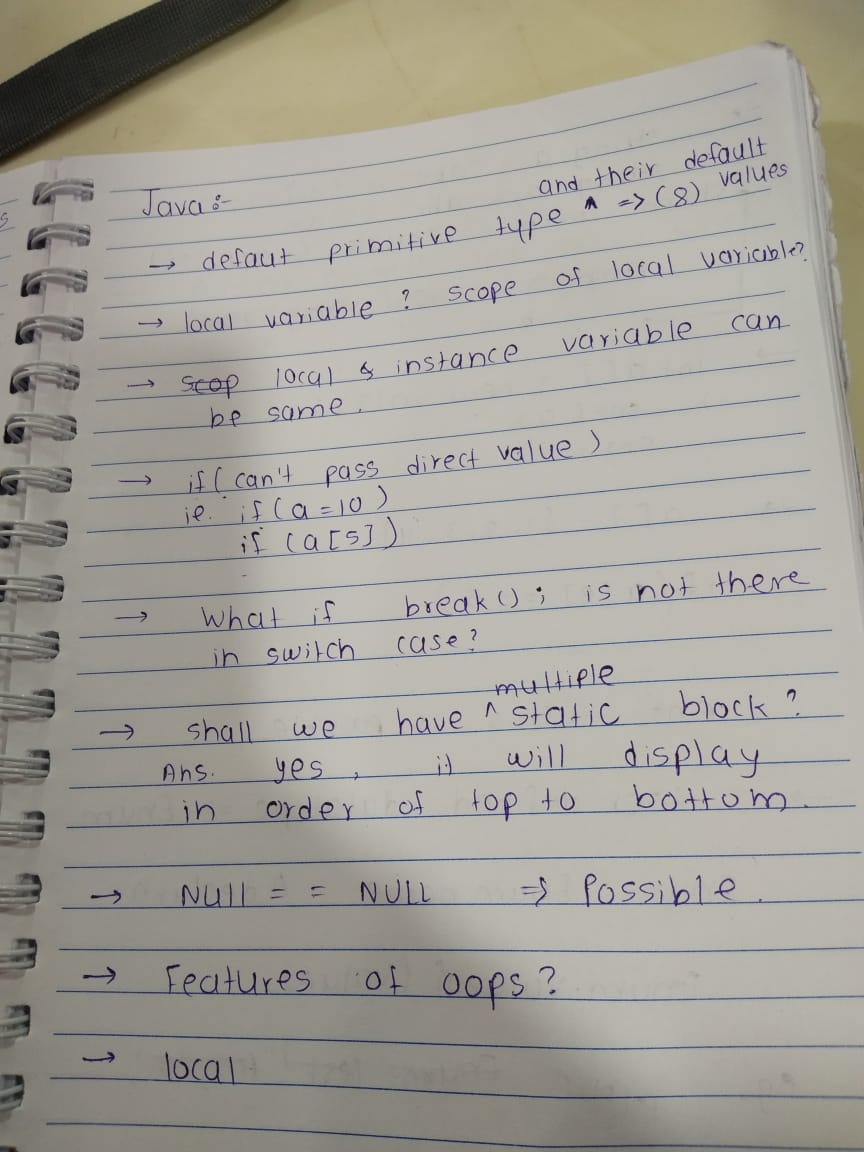 Java :-
and their default
→ defaut primitive type ^ => (8) values
→ local variable ? scope of local variable?
→ scop local & instance variable can
be same.
→ if ( can't pass direct value )
ie. if ( a = 10 )
if ( a [ 5 ] )
→ What if break () ; is not there
in switch case ?
multiple
→ shall we have ^ static block ?
Ans. yes , it will display
in order of top to bottom.
→ NUll = = NULL => Possible.
→ Features of oops ?
→ local